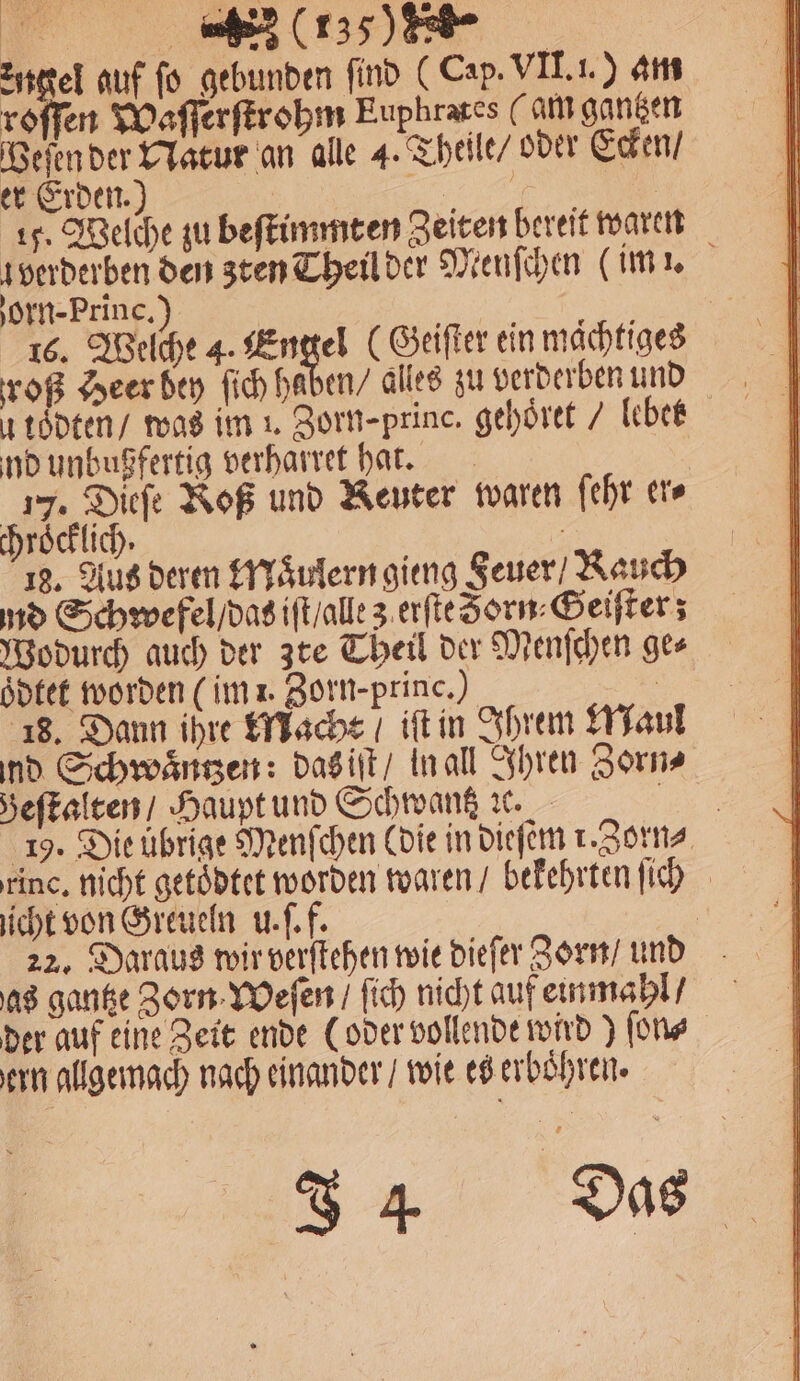 (135)
Engel auf ſo gebunden ſind (Cap. VII. 1.) am
roſſen Waſſerſtrohm Euphrates (am gantzen
Weſen der Natur an alle 4. Theile/ oder Ecken/
er Erden.)
15. Welche zu beſtimmten Zeiten bereit waren
u verderben den 3ten Theil der Menſchen (im 1.
Zorn-Princ.)
16. Welche 4. Engel (Geiſter ein maͤchtiges
roß Heer bey ſich haben/ alles zu verderben und
u toͤdten/ was im 1. Zorn-princ. gehoͤret / lebet
nd unbußfertig verharret hat.
17. Dieſe Roß und Reuter waren ſehr er⸗
chroͤcklich.
18. Aus deren Maͤulern gieng Feuer/ Rauch
nd Schwefel/ das iſt/ alle 3. erſte Zorn-Geiſter;
Wodurch auch der 3te Theil der Menſchen ge⸗
oͤdtet worden (im 1. Zorn-princ.)
18. Dann ihre Macht / iſt in Ihrem Maul
nd Schwaͤntzen: das iſt/ in all Ihren Zorn⸗
Geſtalten/ Haupt und Schwantz ꝛc.
19. Die uͤbrige Menſchen (die in dieſem 1. Zorn⸗
rinc. nicht getoͤdtet worden waren/ bekehrten ſich
nicht von Greueln u. ſ. f.
22. Daraus wir verſtehen wie dieſer Zorn/ und
as gantze Zorn-Weſen/ ſich nicht auf einmahl/
der auf eine Zeit ende (oder vollende wird) ſon⸗
ern allgemach nach einander/ wie es erboͤhren.
J 4 Das